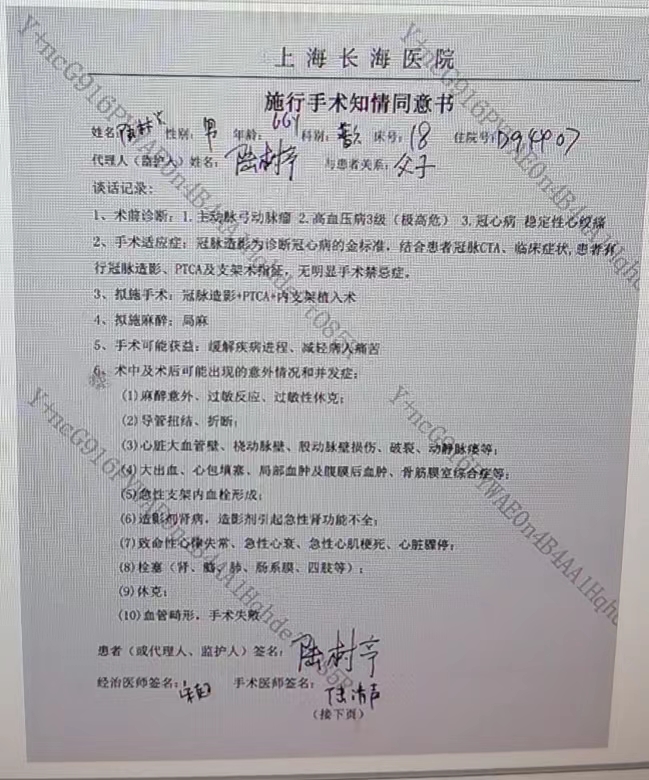 上海长海医院
施行手术知情同意书
姓名: 性别: 男 年龄: 66Y 科别: 床号: 18 住院号: D94907
代理人（监护人）姓名: 陆树亭 与患者关系: 父子
谈话记录:
1、术前诊断: 1.主动脉弓动脉瘤 2.高血压病3级（极高危） 3.冠心病 稳定性心绞痛
2、手术适应症: 冠脉造影为诊断冠心病的金标准，结合患者冠脉CTA、临床症状,患者有
行冠脉造影、PTCA及支架术指征，无明显手术禁忌症。
3、拟施手术: 冠脉造影+PTCA+内支架植入术
4、拟施麻醉: 局麻
5、手术可能获益: 缓解疾病进程、减轻病人痛苦
6、术中及术后可能出现的意外情况和并发症:
(1)麻醉意外、过敏反应、过敏性休克;
(2)导管扭结、折断;
(3)心脏大血管壁、桡动脉壁、股动脉壁损伤、破裂、动静脉瘘等;
(4)大出血、心包填塞、局部血肿及腹膜后血肿、骨筋膜室综合症等;
(5)急性支架内血栓形成;
(6)造影剂肾病，造影剂引起急性肾功能不全;
(7)致命性心律失常、急性心衰、急性心肌梗死、心脏骤停;
(8)栓塞（肾、脑、肺、肠系膜、四肢等）;
(9)休克;
(10)血管畸形，手术失败
患者（或代理人、监护人）签名: 陆树亭
经治医师签名: 手术医师签名:
（接下页）